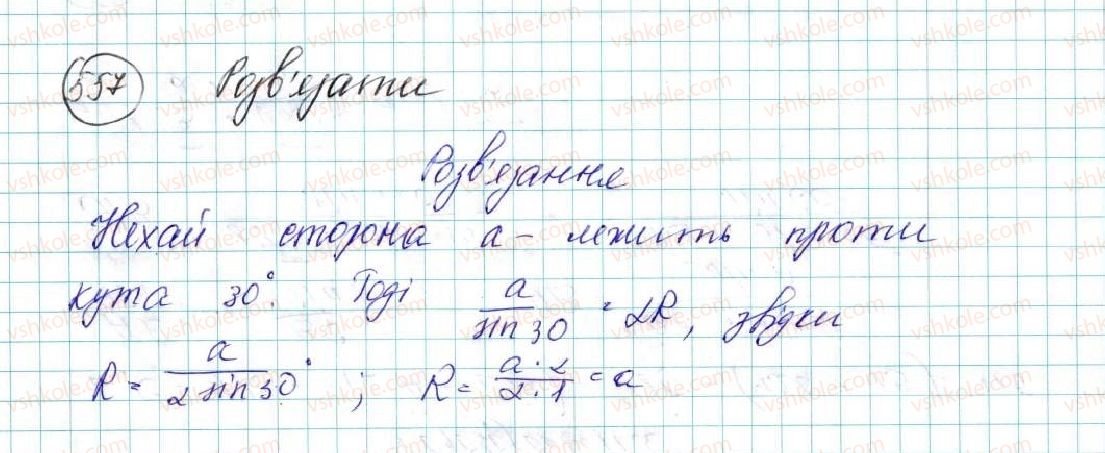 557 Розв'язати
Розв'язання
Нехай сторона a - лежить проти
кута 30°. Тоді a/sin 30 = 2R, звідки
R = a/2 sin 30° ; R = a·2/2·1 = a